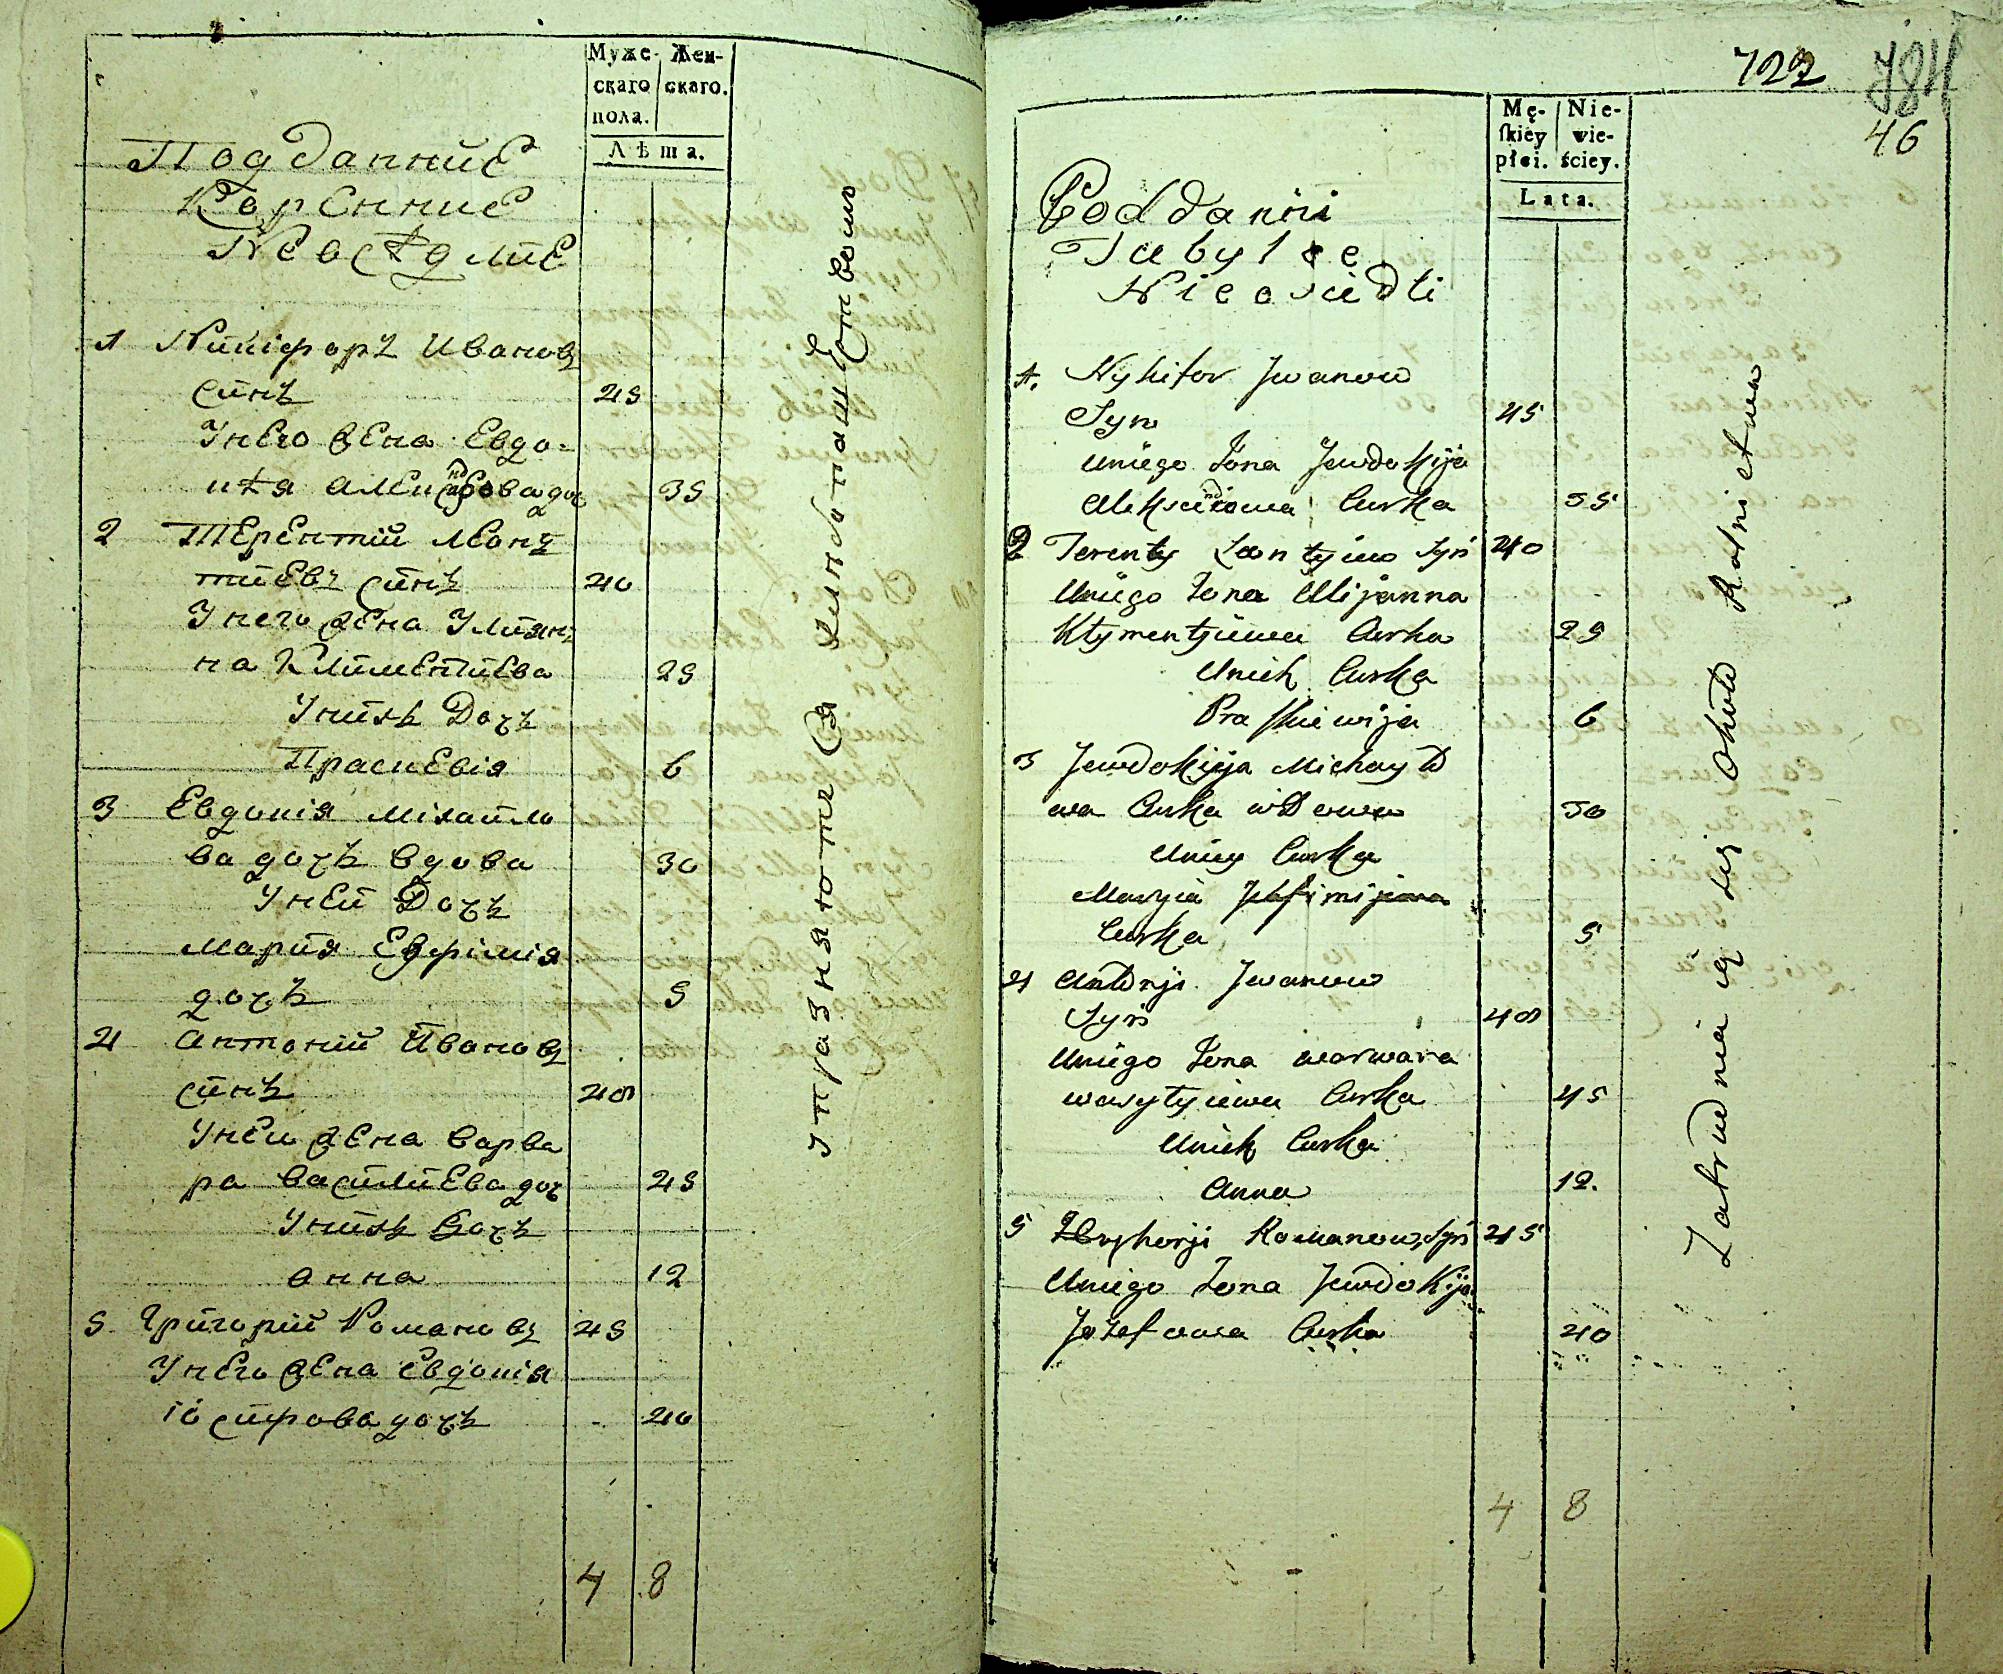 Муже-
скаго
пола.
Жен-
скаго.
Лѣта.
Подданние
Коренние
Неосѣдлие
1 Никіфоръ Ивановъ
синъ 45
У него жена Евдо-
кѣя Александрова доч 35
2 Терентий Леонъ
тиевъ синъ 40
У него жена Улиян
на Климентиева 29
У нихъ Дочь
Праскевія 6
3 Евдокія Міхайло
ва дочь вдова 30
У ней Дочь
Мария Евфімія
дочь 5
4 Антоний Ивановъ
синъ 48
У неи жена Варва
ра Василиева доч 45
У нихъ Дочь
Анна 12
5 Григорий Романовъ 45
У него жена Евдокія
Іосифова дочь 40
4 8
упражняются хлебопашествомъ
722
784
46
Mę-
skiey
płci.
Nie-
wie-
ściey.
Lata.
Poddanni
Tubylce
Nieosiedli
1. Nykifor Jwanow
Syn 45
Uniego Żona Jewdokija
Aleksandrowa Curka 35
2 Terenty Leontyiew Syn 40
Uniego Żona Ulijanna
Kłymentyiewa Curka 29
Unich Curka
Praskiewija 6
3 Jewdokija Michayło
wa Curka wdowa 30
Uniey Curka
Maryia Jefimijowa
Curka 5
4 Antonji Jwanow
Syn 48
Uniego Żona Warwara
Wasylyiewa Curka 45
Unich Curka
Anna 12.
5 Hryhorji Romanow Syn 45
Uniego Żona Jewdokija
Jozefowa Curka 40
4 8
Zatrudniaią się Około Rolnictwa